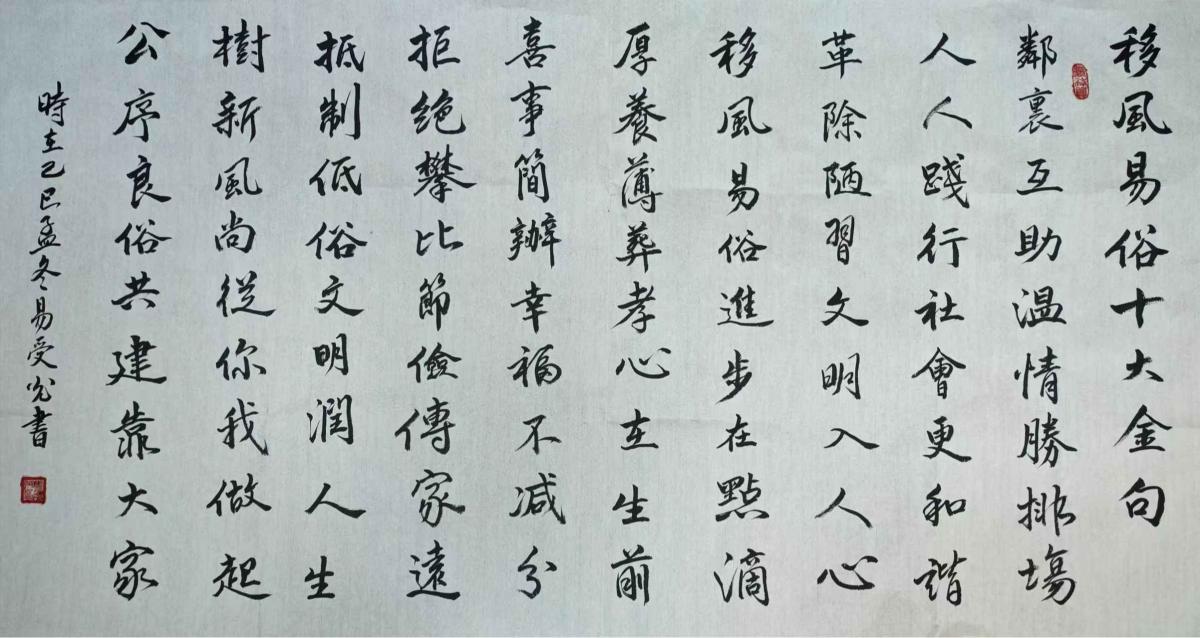 移風易俗十大金句
鄰裏互助溫情勝排場
人人踐行社會更和諧
革除陋習文明入人心
移風易俗進步在點滴
厚養薄葬孝心在生前
喜事簡辦幸福不減分
拒绝攀比節儉傳家遠
抵制低俗文明潤人生
樹新風尚從你我做起
公序良俗共建靠大家
時在乙巳孟冬易受光書